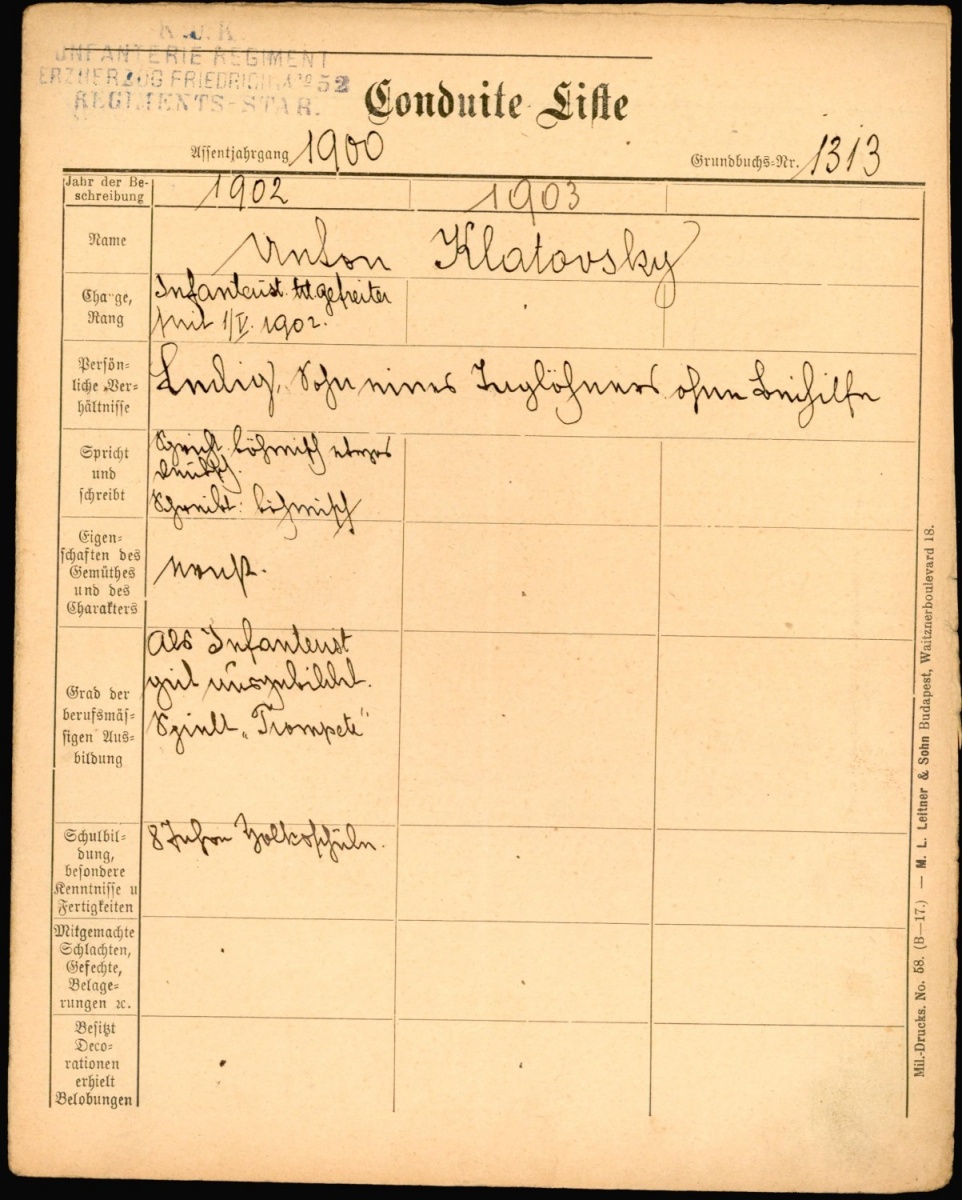 K. u. K.
INFANTERIE REGIMENT
ERZHERZOG FRIEDRICH No 52
REGIMENTS-STAB.
Conduite-Liste
Assentjahrgang 1900
Grundbuchs-Nr. 1313
Jahr der Be-
schreibung
1902
1903
Name
Anton Klatovsky
Charge,
Rang
Infanterist tit. gefreiter
seit 1/V. 1902.
Persön-
liche Ver-
hältnisse
Ledig, Sohn eines Taglöhners ohne Beihilfe
Spricht
und
schreibt
Spricht böhmisch etwas
deutsch.
Schreibt: böhmisch
Eigen-
schaften des
Gemüthes
und des
Charakters
ernst.
Grad der
berufsmäs-
sigen Aus-
bildung
Als Infanterist
gut ausgebildet.
Spielt „Trompete"
Schulbil-
dung,
besondere
Kenntnisse u
Fertigkeiten
8 Jahre Volksschule.
Mitgemachte
Schlachten,
Gefechte,
Belage-
rungen ꝛc.
Besitzt
Deco-
rationen
erhielt
Belobungen
Mil.-Drucks. No. 58. (B—17.) — M. L. Leitner & Sohn Budapest, Waitznerboulevard 18.